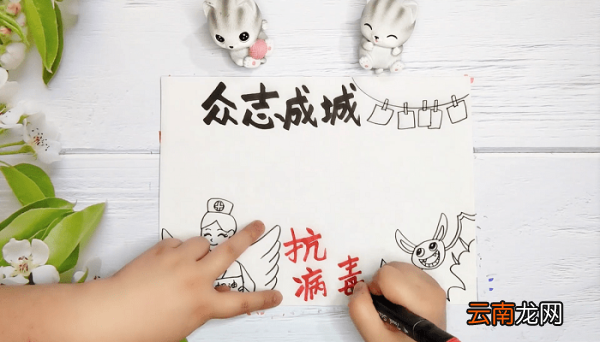 众志成城
抗
病毒
加油
云南龙网